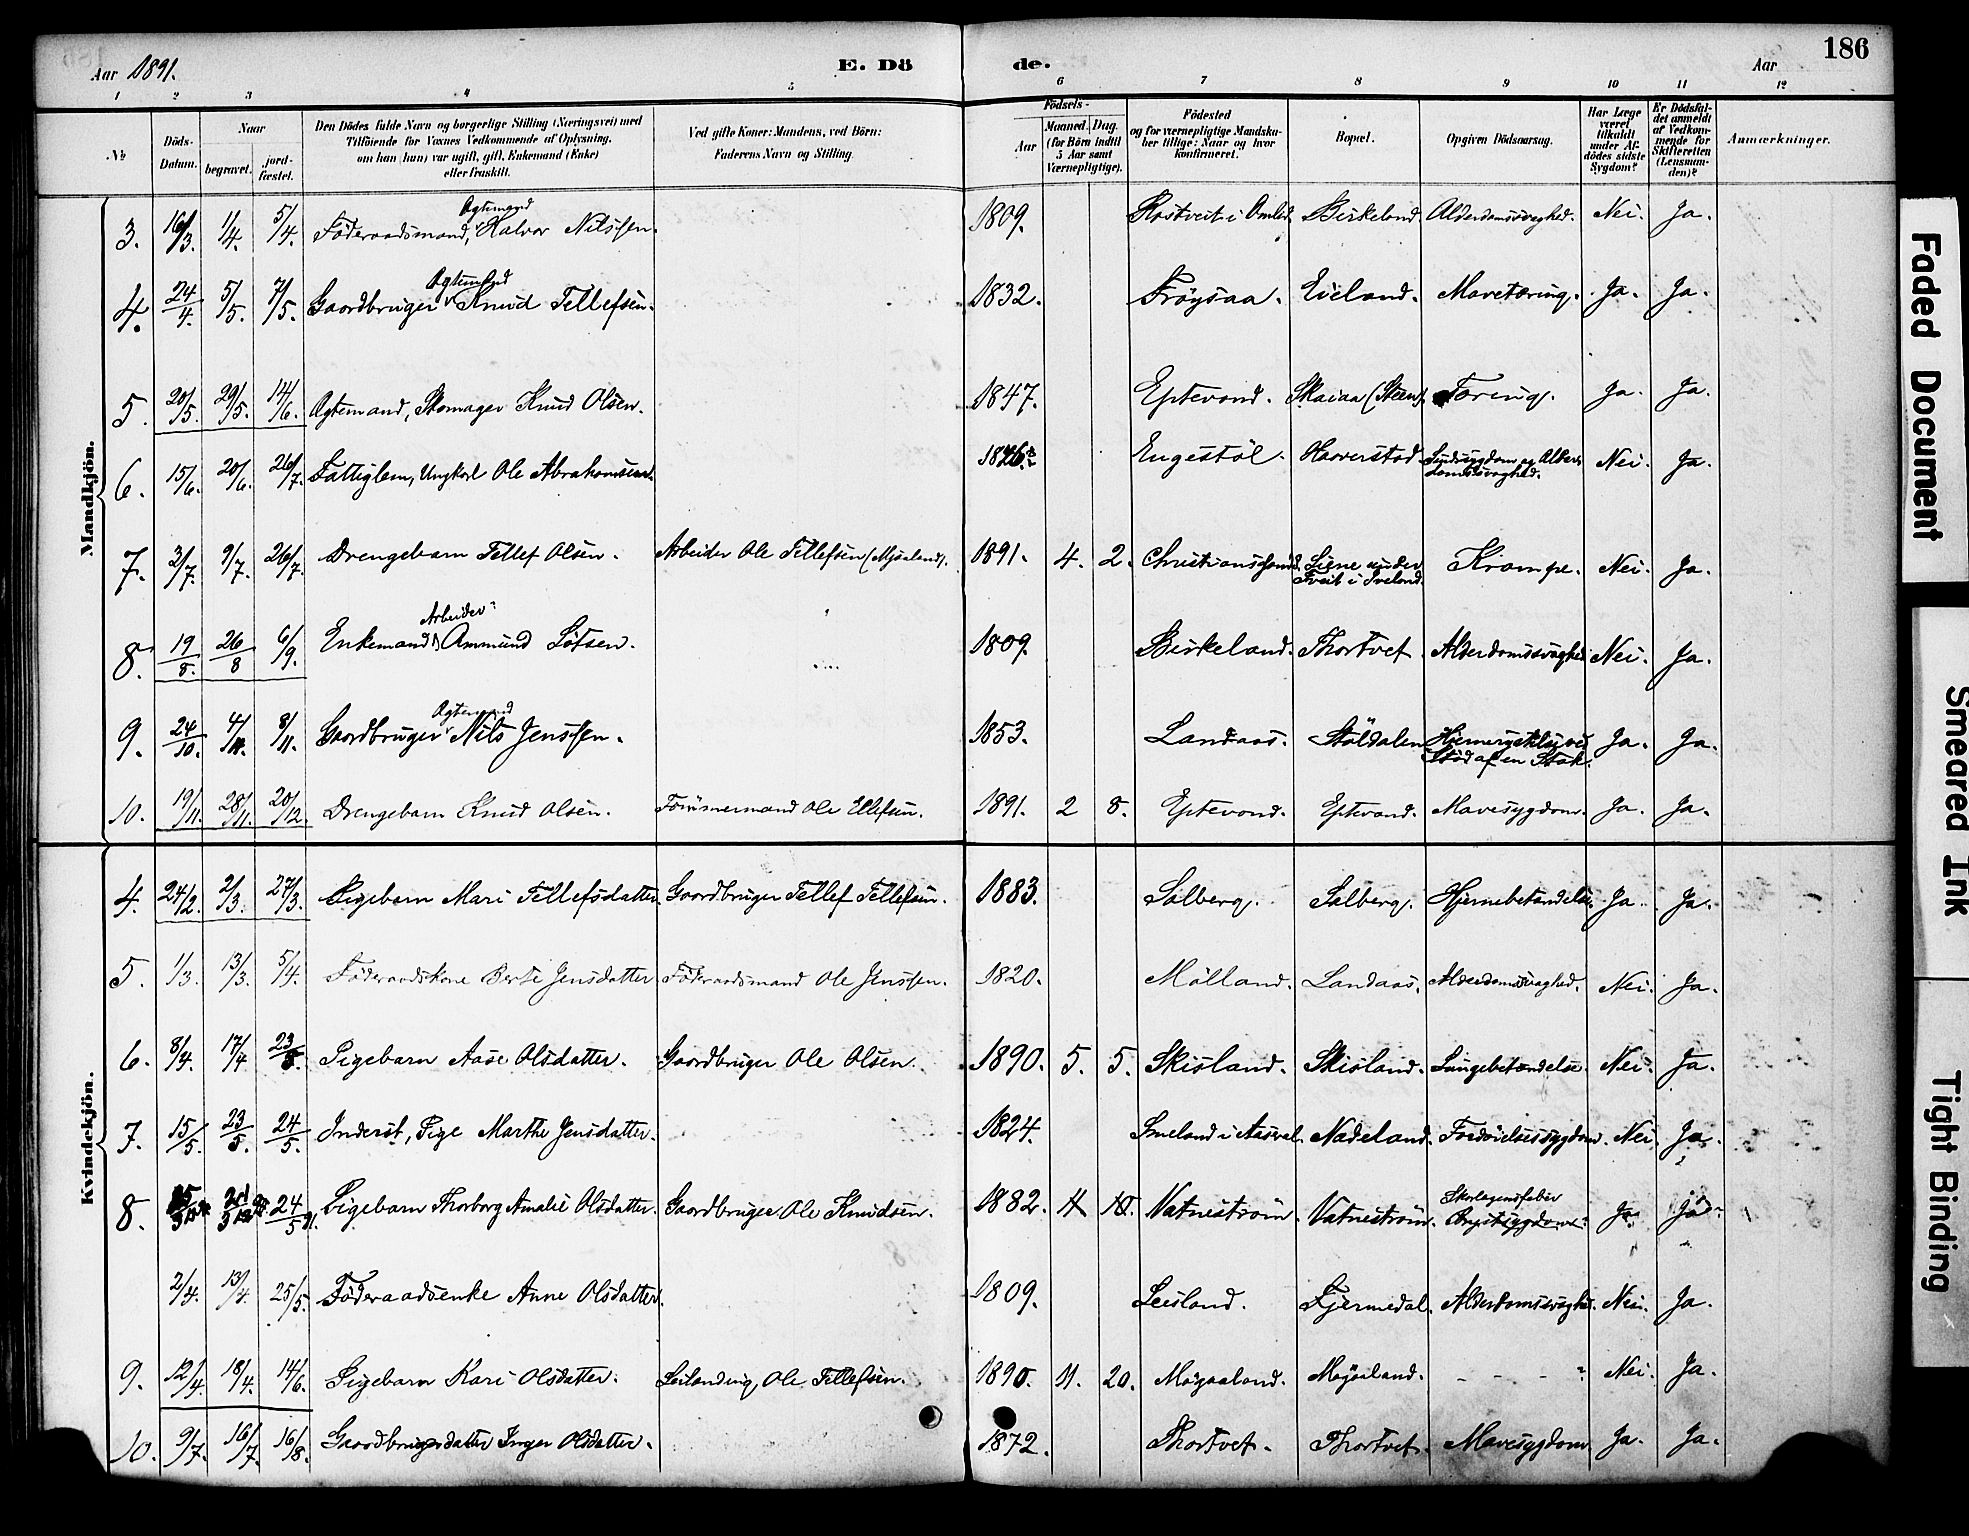 186
Aar 1891. E. Dö de. Aar
1 2 3 4 5 6 7 8 9 10 11 12
№
Döds-Datum.
Naar
begravet.
jord-fæstet.
Den Dödes fulde Navn og borgerlige Stilling (Næringsvei) med
Tilföiende for Voxnes Vedkommende af Oplysning,
om han (hun) var ugift, gift, Enkemand (Enke)
eller fraskilt.
Ved gifte Koner: Mandens, ved Börn:
Faderens Navn og Stilling.
Födsels-
Aar
Maaned. Dag.
(for Börn indtil
5 Aar samt
Værnepligtige).
Födested
og for værnepligtige Mandska-
ber tillige: Naar og hvor
konfirmeret.
Bopæl.
Opgiven Dödsaarsag.
Har Læge
været
tilkaldt
under Af-
dödes sidste
Sygdom?
Er Dödsfal-
det anmeldt
af Vedkom-
mende for
Skifteretten
(Lensman-
den)?
Anmærkninger.
Mandkjön.
3. 16/3. 1/4. 5/4. Föderaadsmand, Ægtemand Halvor Nilssen. 1809. Birkeland. Alderdomssvaghed. Nei. Ja.
4. 24/4. 5/5. 7/5. Gaardbruger Ægtemand Knud Tellefsen. 1832. Fröysaa. Eveland. Mavetæring. Ja. Ja.
5. 20/5. 29/5. 14/6. Ægtemand, Skomager Knud Olsen. 1847. Eptevand. Skaiaa (Steen). Tæring. Ja. Ja.
6. 15/6. 20/6. 26/7. Fattiglem, Ungkarl Ole Abrahamsen. Engestöl. Haverstad. Nei. Ja.
7. 3/7. 9/7. 26/7. Drengebarn Tellef Olsen. Arbeider Ole Tellefsen (Mjaaland). 1891. 4. 2. Christianssand. Liene under Tveit i Iveland. Krampe. Nei. Ja.
8. 19/8. 26/8 6/9. Enkemand, Arbeider Ammund Lötsen. 1809. Birkeland. Thortvet. Alderdomssvaghed. Nei. Ja.
9. 24/10. 4/11. 8/11. Gaardbruger Ægtemand Nils Jenssen. 1853. Landaas. Stöldalen. Hjernerystelse ved Stöd af en Stok. Ja. Ja.
10. 19/11. 28/11. 20/12. Drengebarn Knud Olsen. Tömmermand Ole Ellefsen. 1891. 2 8. Eptevand. Eptevand. Mavesygdom. Ja. Ja.
Kvindekjön.
4. 24/2. 2/3. 27/3. Pigebarn Mari Tellefsdatter. Gaardbruger Tellef Tellefsen. 1883. Solberg. Solberg. Hjernebetændelse. Ja. Ja.
5. 1/3. 13/3. 5/4. Föderaadskone Berte Jensdatter Föderaadsmand Ole Jenssen. 1820. Mölland. Landaas. Alderdomssvaghed. Nei. Ja.
6. 8/4. 17/4 23/5. Pigebarn Aase Olsdatter. Gaardbruger Ole Olsen. 1890. 5. 5. Skisland. Skisland. Lungebetændelse. Nei. Ja.
7. 15/5. 23/5. 24/5. Inderst, Pige Marthe Jensdatter. 1824. Smeland i Aaseral. Nadeland. Fordöielsessygdom. Nei. Ja.
8. 24/5 91. Pigebarn Thorborg Amalie Olsdatter. Gaardbruger Ole Knudsen. 1882. Vatneström. Vatneström. Skarlagensfeber Brystsygdom. Ja. Ja.
2/4. 13/4. 25/5. Föderaadsenke Anne Olsdatter. 1809. Leisland. Fjermedal. Alderdomssvaghed. Nei. Ja.
9. 12/4. 18/4. 14/6. Pigebarn Kari Olsdatter. Leilending Ole Tellefsen. 1890. 11. 20. Möjaaland. Möjaaland. - - - ? Nei. Ja.
10. 9/7. 16/7. 16/8. Gaardbrugerdatter Inger Olsdatter. 1872. Thortvet. Thortvet. Mavesygdom. Ja. Ja.
Faded Document
Smeared Ink
Tight Binding